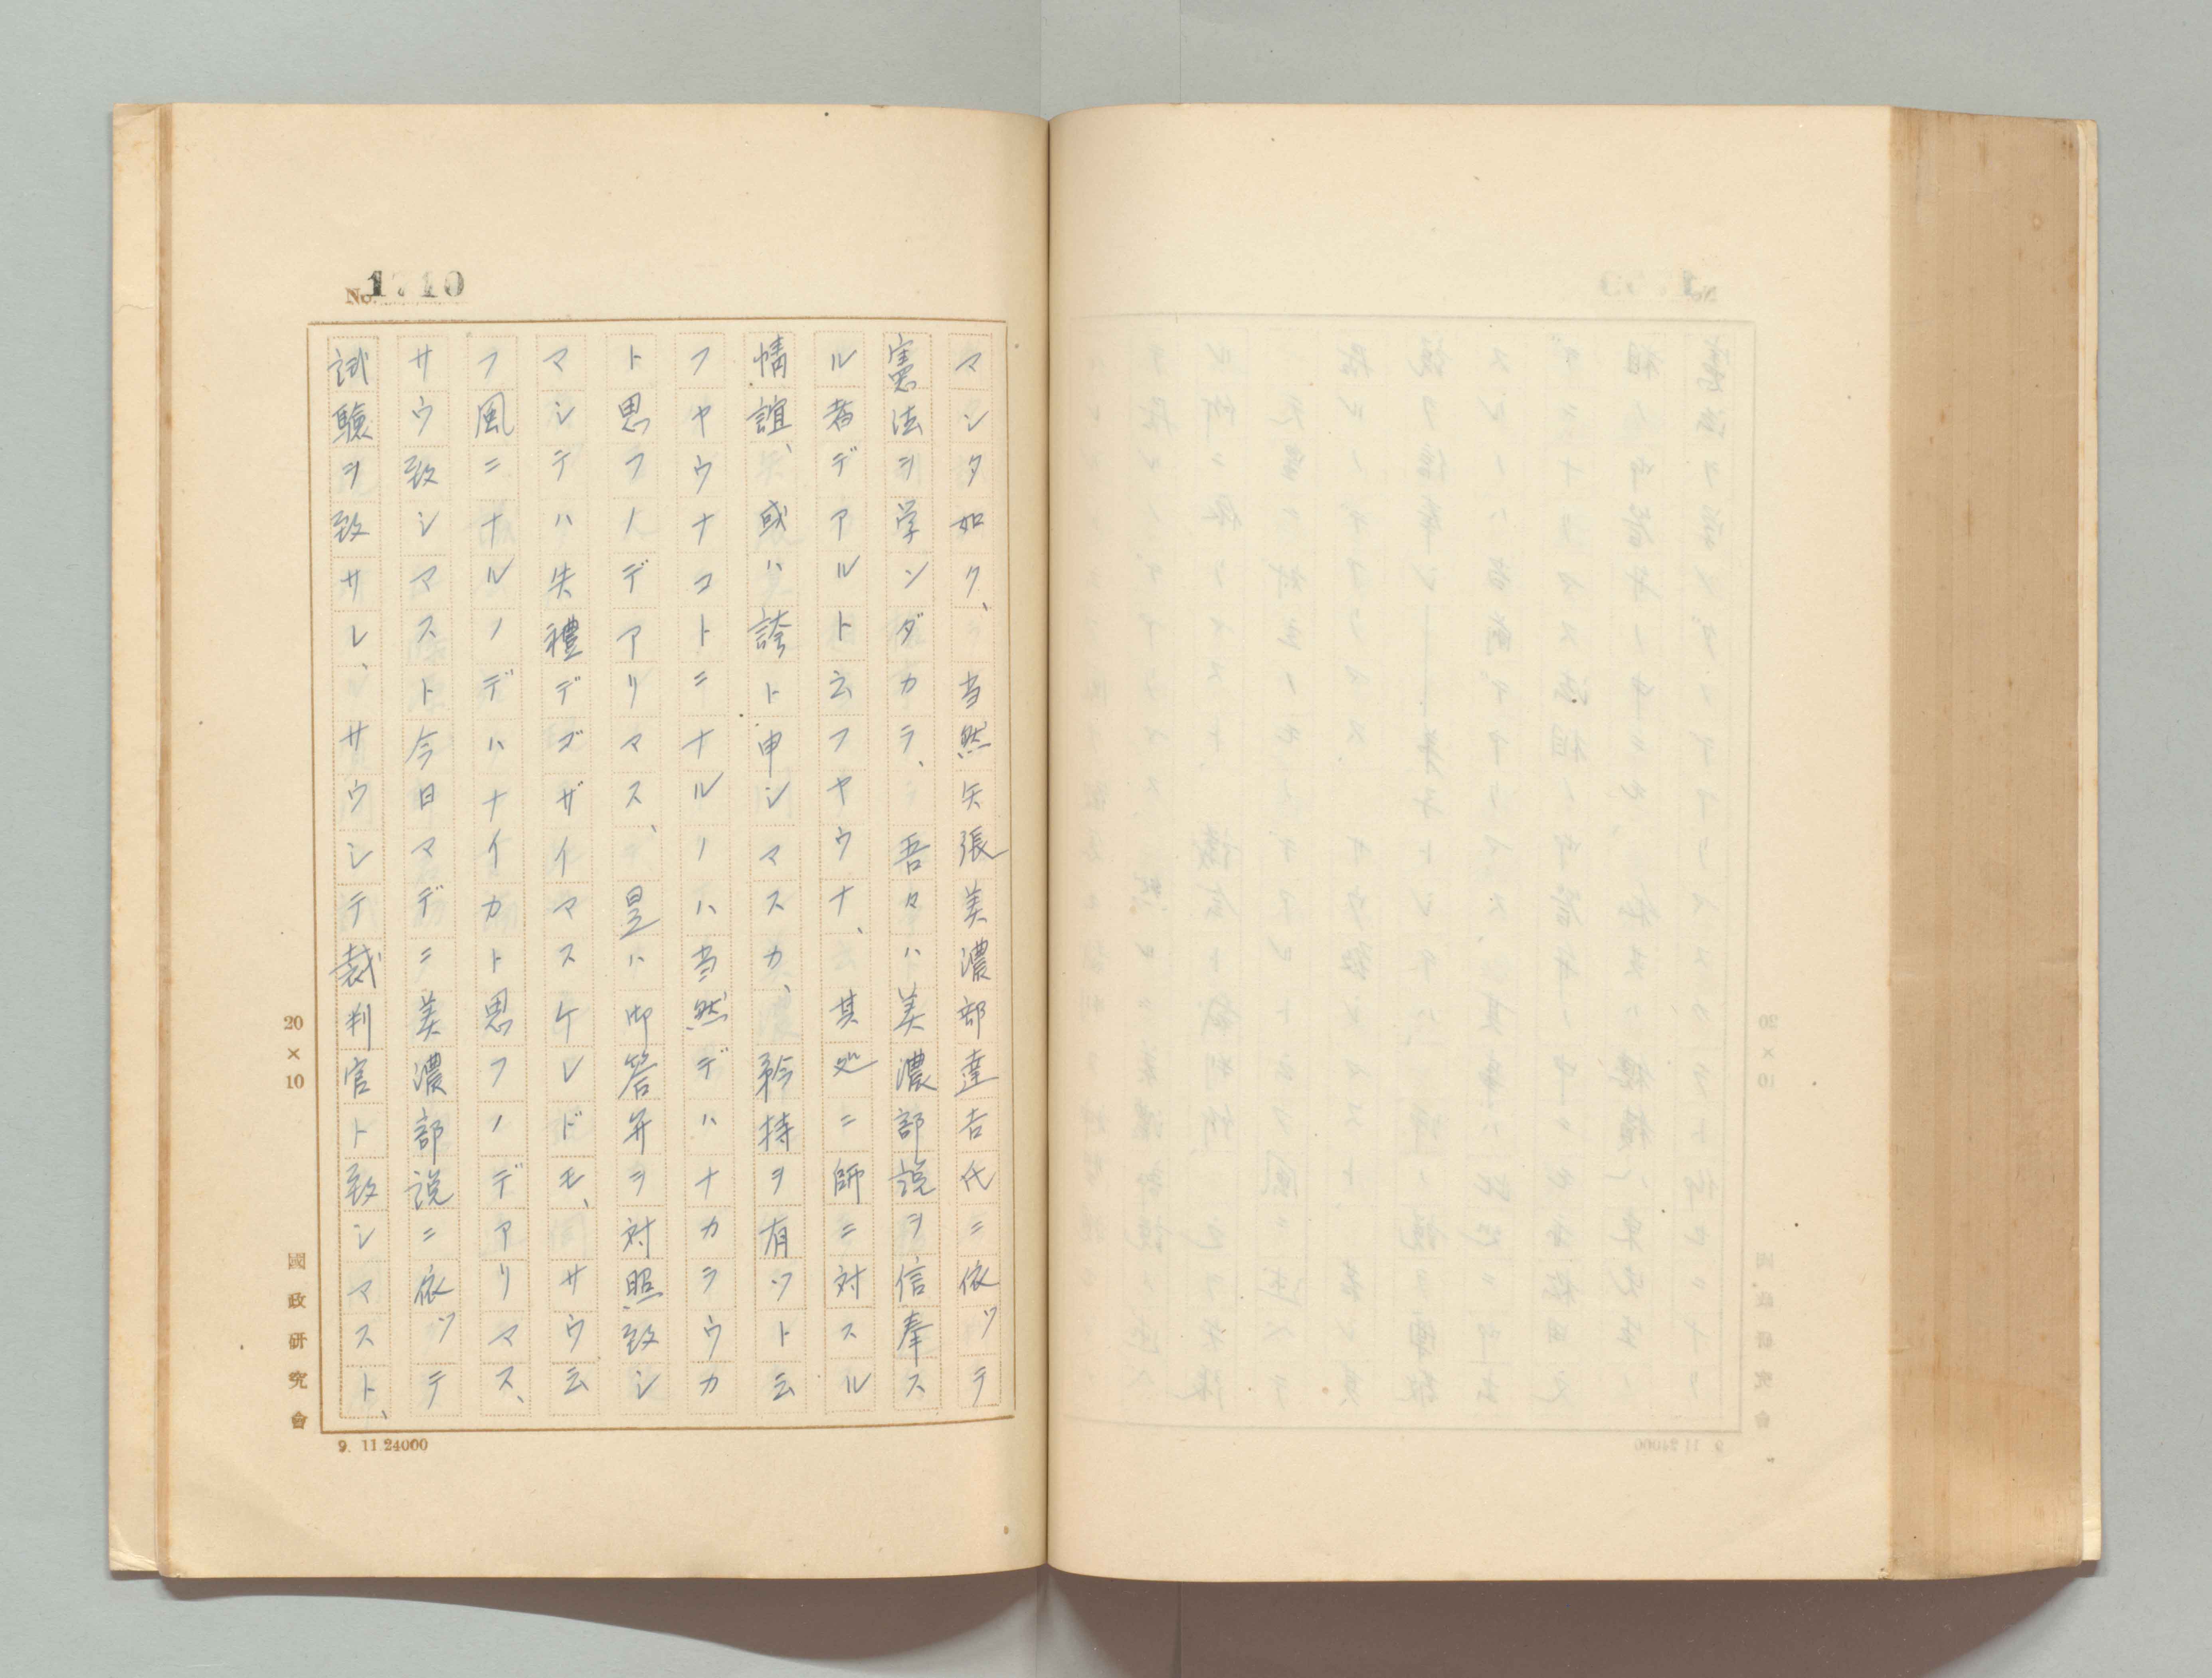 No. 1710
マシタ如ク、当然矢張美濃部達吉氏ニ依ツテ
憲法ヲ学ンダカラ、吾々ハ美濃部説ヲ信奉ス
ル者デアルト云フヤウナ、其処ニ師ニ対スル
情誼、或ハ誇ト申シマスカ、矜持ヲ有ツト云
フヤウナコトニナルノハ当然デハナカラウカ
ト思フノデアリマス、是ハ御答弁ヲ対照致シ
マシテハ失禮デゴザイマスケレドモ、サウ云
フ風ニナルノデハナイカト思フノデアリマス、
サウ致シマスト今日マデニ美濃部説ニ依ツテ
試験ヲ致サレ、サウシテ裁判官ト致シマスト、
20×10
國政研究會
9. 11.24000